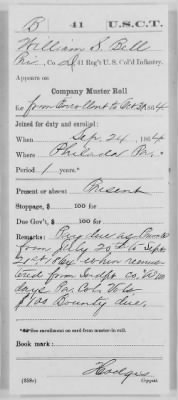 B | 41 | U.S.C.T.
William S. Bell
Pvt., Co. B, 41 Reg't U.S. Col'd Infantry.
Appears on
Company Muster Roll
for from Enrollment to Oct 31, 1864
Joined for duty and enrolled:
When Sep. 24, 1864
Where Philada Pa.
Period 1 years.*
Present or absent Present
Stoppage, $ 100 for
Due Gov't, $ 100 for
Remarks: Pay due as Private
from July 20th to Sept
21st 1864 when remus
tered from Indpt Co. "A" 100
days Pa. Col. Vols
$100 Bounty due.
*See enrollment on card from muster-in roll.
Book mark:
Hodges
(358c) Copyist.